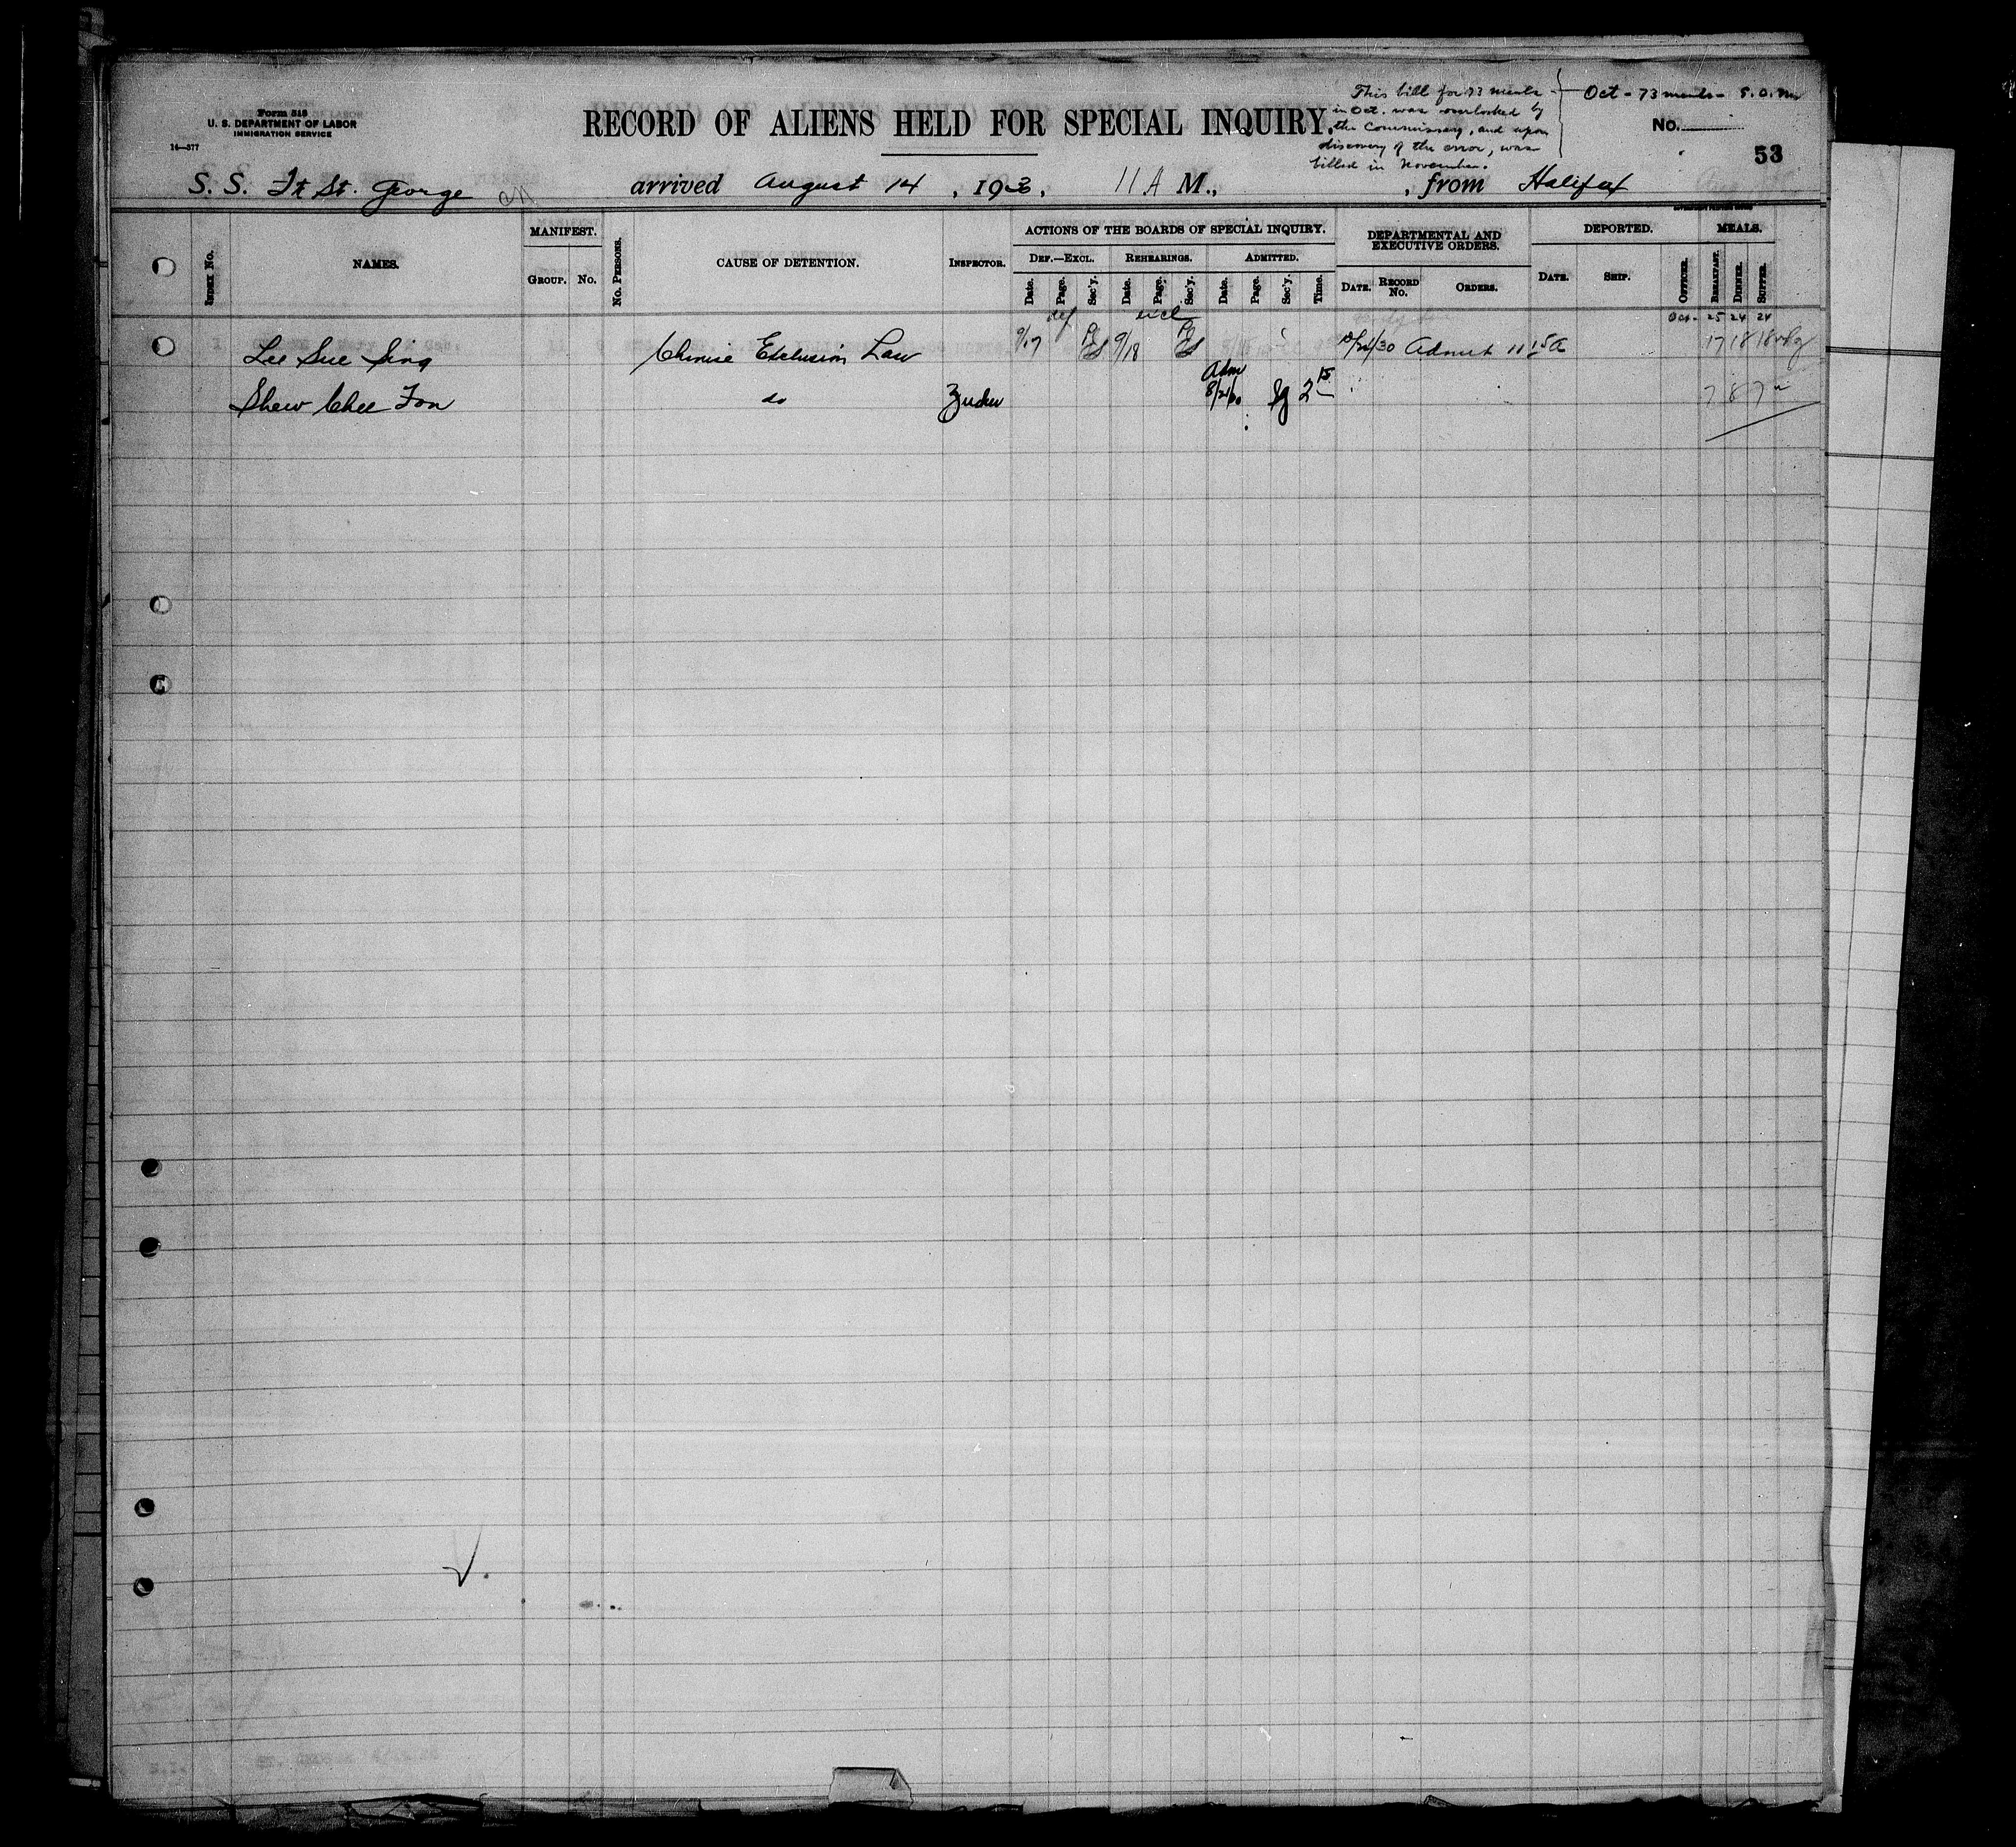 Form 518
U. S. DEPARTMENT OF LABOR
IMMIGRATION SERVICE
14—377
RECORD OF ALIENS HELD FOR SPECIAL INQUIRY.
This bill for 73 meals
in Oct. was overlooked by
the Commissary, and upon
discovery of the error, was
billed in November.
Oct - 73 meals -
No.
53
S. S. Ft St. George arrived August 14, 193, 11 A M., from Halifax
GOVERNMENT PRINTING OFFICE
INDEX NO.
NAMES.
MANIFEST.
GROUP. NO.
NO. PERSONS.
CAUSE OF DETENTION.
INSPECTOR.
ACTIONS OF THE BOARDS OF SPECIAL INQUIRY.
DEF.—EXCL. REHEARINGS. ADMITTED.
DATE. PAGE. SEC'Y. DATE. PAGE. SEC'Y. DATE. PAGE. SEC'Y. TIME.
DEPARTMENTAL AND
EXECUTIVE ORDERS.
DATE. RECORD NO. ORDERS.
DEPORTED.
DATE. SHIP. OFFICER.
MEALS.
BREAKFAST. DINNER. SUPPER.
def excl Oct- 25 24 24
Lee Sue Sing Chinese Exclusion Law 9/17 9/18 Admit 11 15 a 17 18 18
Adm
Shew Chee Fon do 2 15 7 8 7